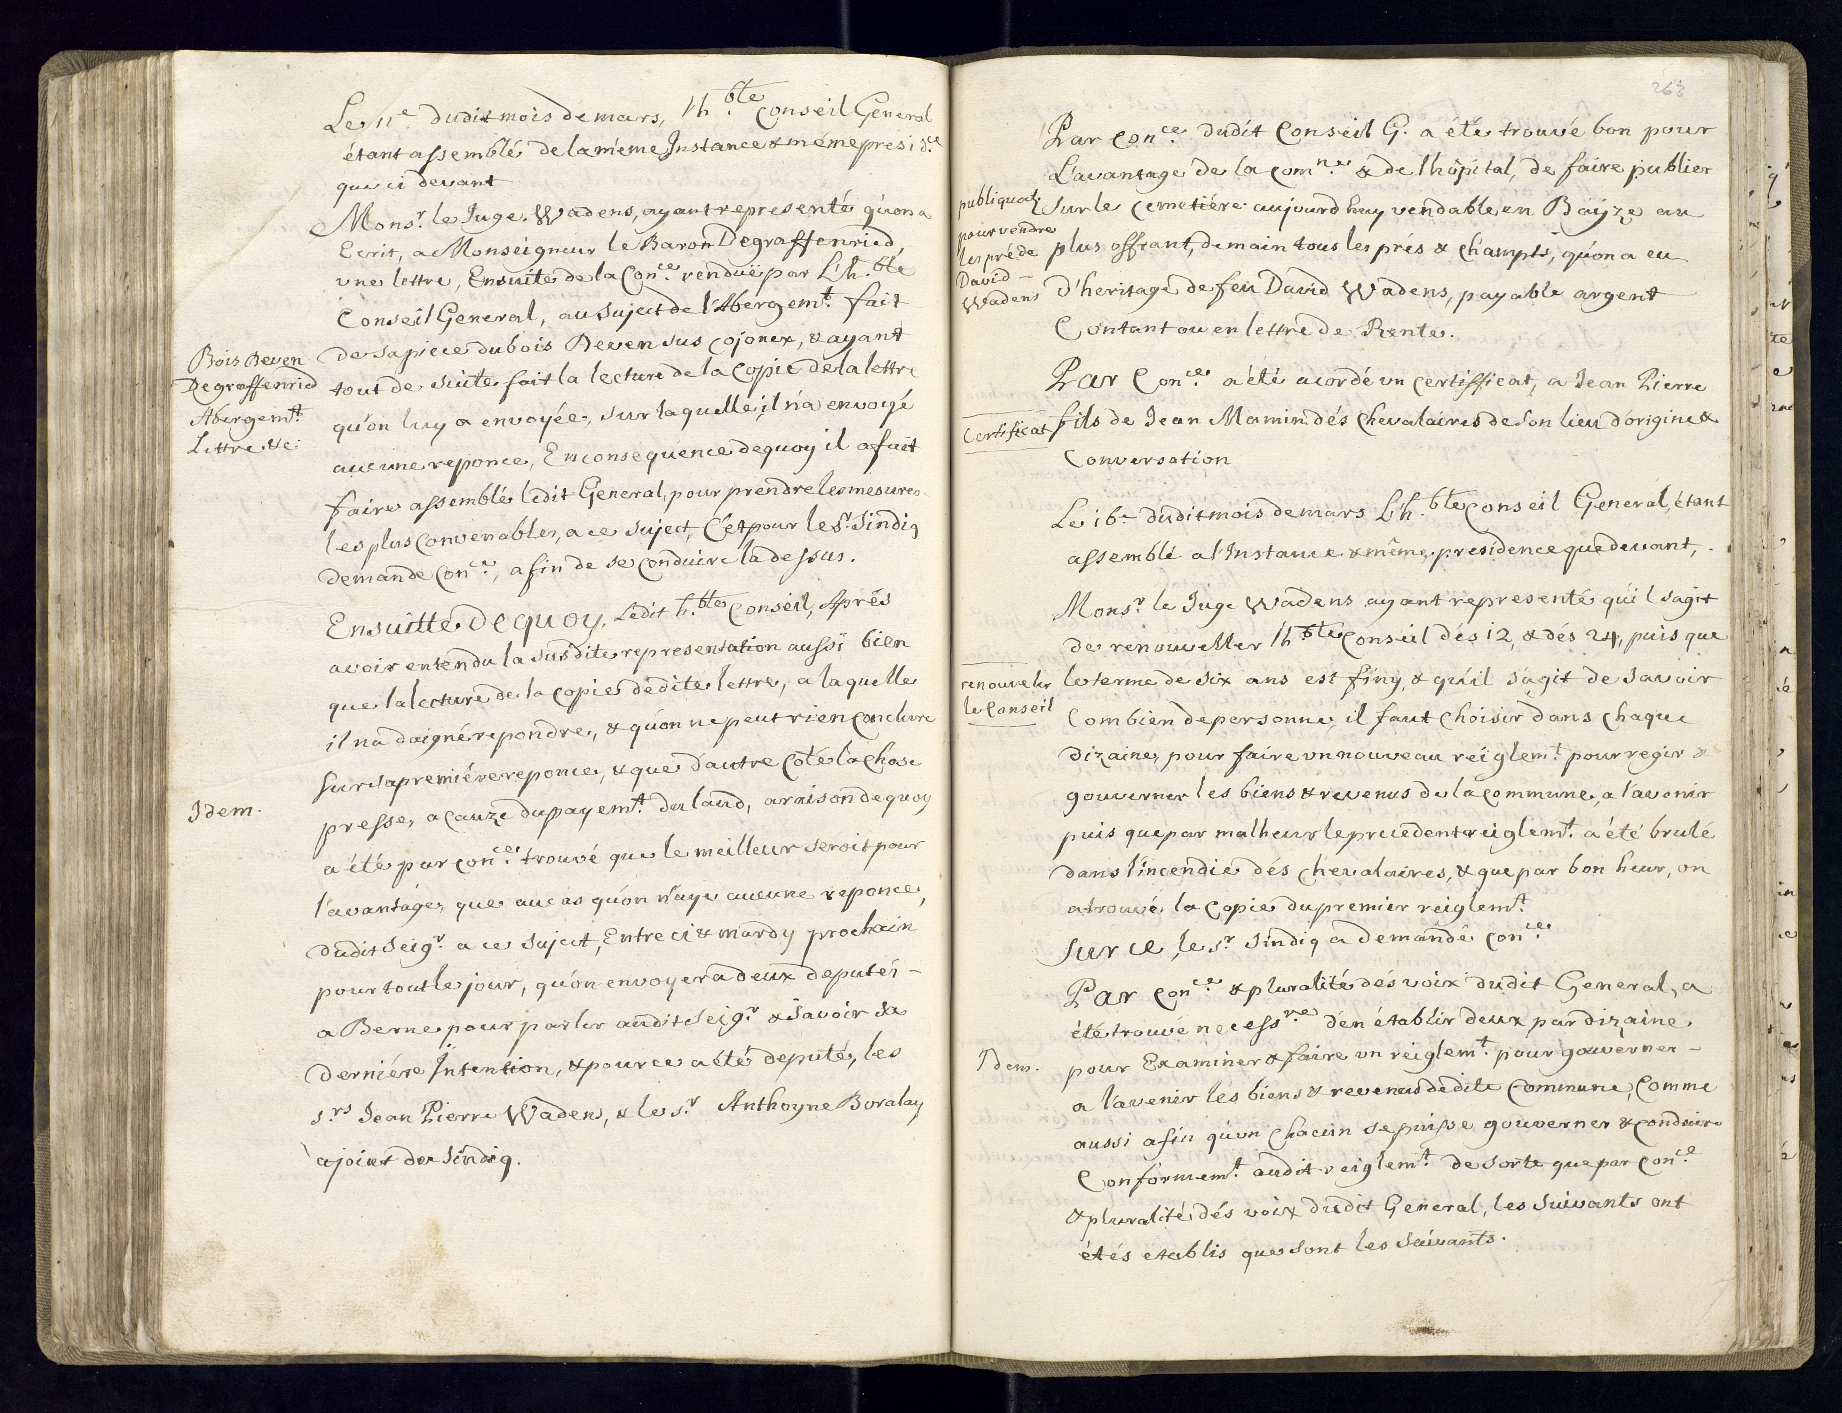 Le 11e dudit mois de mars, lh.ble Conseil General
étant assemblé de la méme Instance & méme presid.ce
que ci devant
Mons.r le Juge Wadens, ayant representé qu'on a
Ecrit, a Monseigneur le Baron Degraffenried,
vne lettre, Ensuite de la Con.ce renduë par L'h.ble
Conseil General, au suject de l'Abergem.t fait
de sa piece du bois Deven sus Cojonex, & ayant
Bois Deven
Degraffenried
Abergem.t
Lettre &c
tout de suite fait la lecture de la Copie de la lettre
qu'on luy a envoyée, sur laquelle, il n'a envoyé
aucune reponce, En consequence de quoy il a fait
faire assemblé ledit General, pour prendre les mesures
les plus Convenables, a ce suject, C'est pour le S.r Sindiq
demande Con.ce, afin de se conduire la dessus.
Ensuitte de quoy, Ledit h.ble Conseil, Aprés
avoir entendu la susdite representation aussi bien
que la lecture de la Copie dedite lettre, a laquelle
il n'a daigné repondre, & qu'on ne peut rien Conclure
sur sa premiére reponce, & que d'autre Coté la Chose
Idem.
presse, a cauze du payem.t du laud, a raison de quoy
a été par con.ce trouvé que le meilleur seroit pour
l'avantage, que au cas qu'on n'aye aucune reponce,
dudit Seig.r a ce suject, Entre ci & mardy prochain
pour tout le jour, qu'on envoyera deux deputés
a Berne pour parler audit Seig.r & savoir sa
derniére Intention, & pour ce a été deputé, les
s.rs Jean Pierre Wadens, & le s.r Anthoyne Boralay
ajoint du Sindiq.
263
Par Con.ce dudit Conseil G. a été trouvé bon pour
L'avantage de la Com.ne & de lhôpital, de faire publier
publiquatz
pour vendre
les pré de
David
Wadens
sur le cemetiére aujourdhuy vendable, en Bayze au
plus offrant, demain tous les prés & Champts, qu'on a eu
D'heritage de feu David Wadens, payable argent
Contant ou en lettre de Rente.
Par Con.ce a été acordé vn certifficat, a Jean Pierre
Certificat
fils de Jean Mamin dés Chevalaires de son lieu d'origine &
Conversation
Le 16e dudit mois de mars L'h.ble Conseil General, étant
assemblé a l'Instance & même presidence que devant,
Mons.r le Juge Wadens ayant representé qu'il sagit
de renouveller lh.ble Conseil dés 12, & dés 24, puis que
renouveler
le Conseil
le terme de six ans est finy, & qu'il s'agit de savoir
Combien de personne, il faut choisir dans chaque
dizaine, pour faire vn nouveau reiglem.t pour regir &
gouverner les biens & revenus de la Commune, a l'avenir
puis que par malheur le precedent reiglem.t a été brulé
dans l'incendie dés Chevalaires, & que par bon heur, on
a trouvé la Copie du premier reiglem.t
sur ce, le s.r Sindiq a demandé Con.ce
Par Con.ce & pluralité dés voix dudit General, a
été trouvé necess.re d'en établir deux par dizaine
Idem.
pour Examiner & faire vn reiglem.t pour gouverner
a l'avenir les biens & revenus dedite Commune, Comme
aussi afin qu'vn Chacun se puisse gouverner & Conduire
Conformem.t audit reiglem.t de sorte que par Con.ce
& pluralité dés voix dudit General, les suivants ont
étés etablis que sont les suivants.